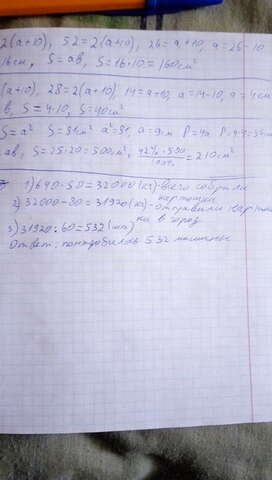 2(a+10), 52=2(a+10), 26=a+10, a=26-10
16см, S=ab, S=16·10=160см²
(a+10), 28=2(a+10), 14=a+10, a=14-10, a=4см
b, S=4·10, S=40см²
S=a² S=81м² a²=81, a=9м P=4a P=4·9=
ab, S=25·20=500м², 42%·500/100%=210см²
1) 640·50=32000(кг)-всего собрали
картошки
2) 32000-80=31920(кг)-отправили
в город
3) 31920:60=532(шт)
Ответ: понадобилось 532 машины